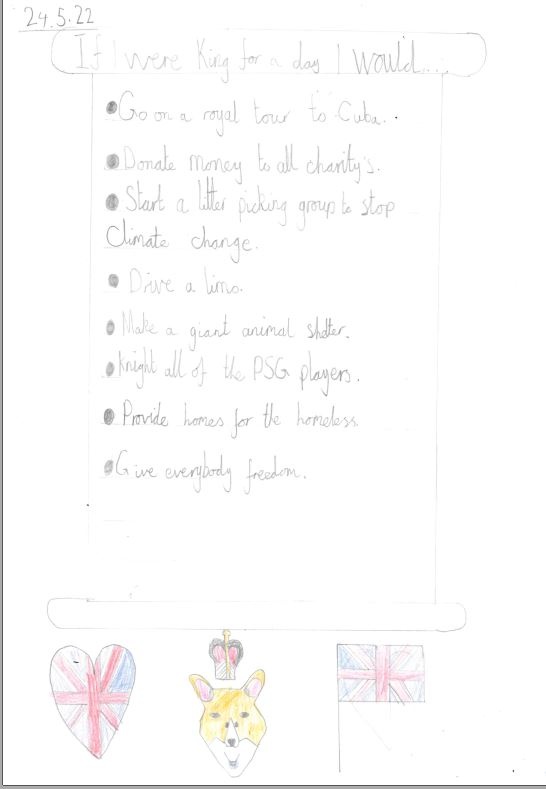 24.5.22
If I were King for a day I would...
• Go on a royal tour to Cuba.
• Donate money to all charity's.
• Start a litter picking group to stop
Climate change.
• Drive a limo.
• Make a giant animal shelter.
• Knight all of the PSG players.
• Provide homes for the homeless.
• Give everybody freedom.